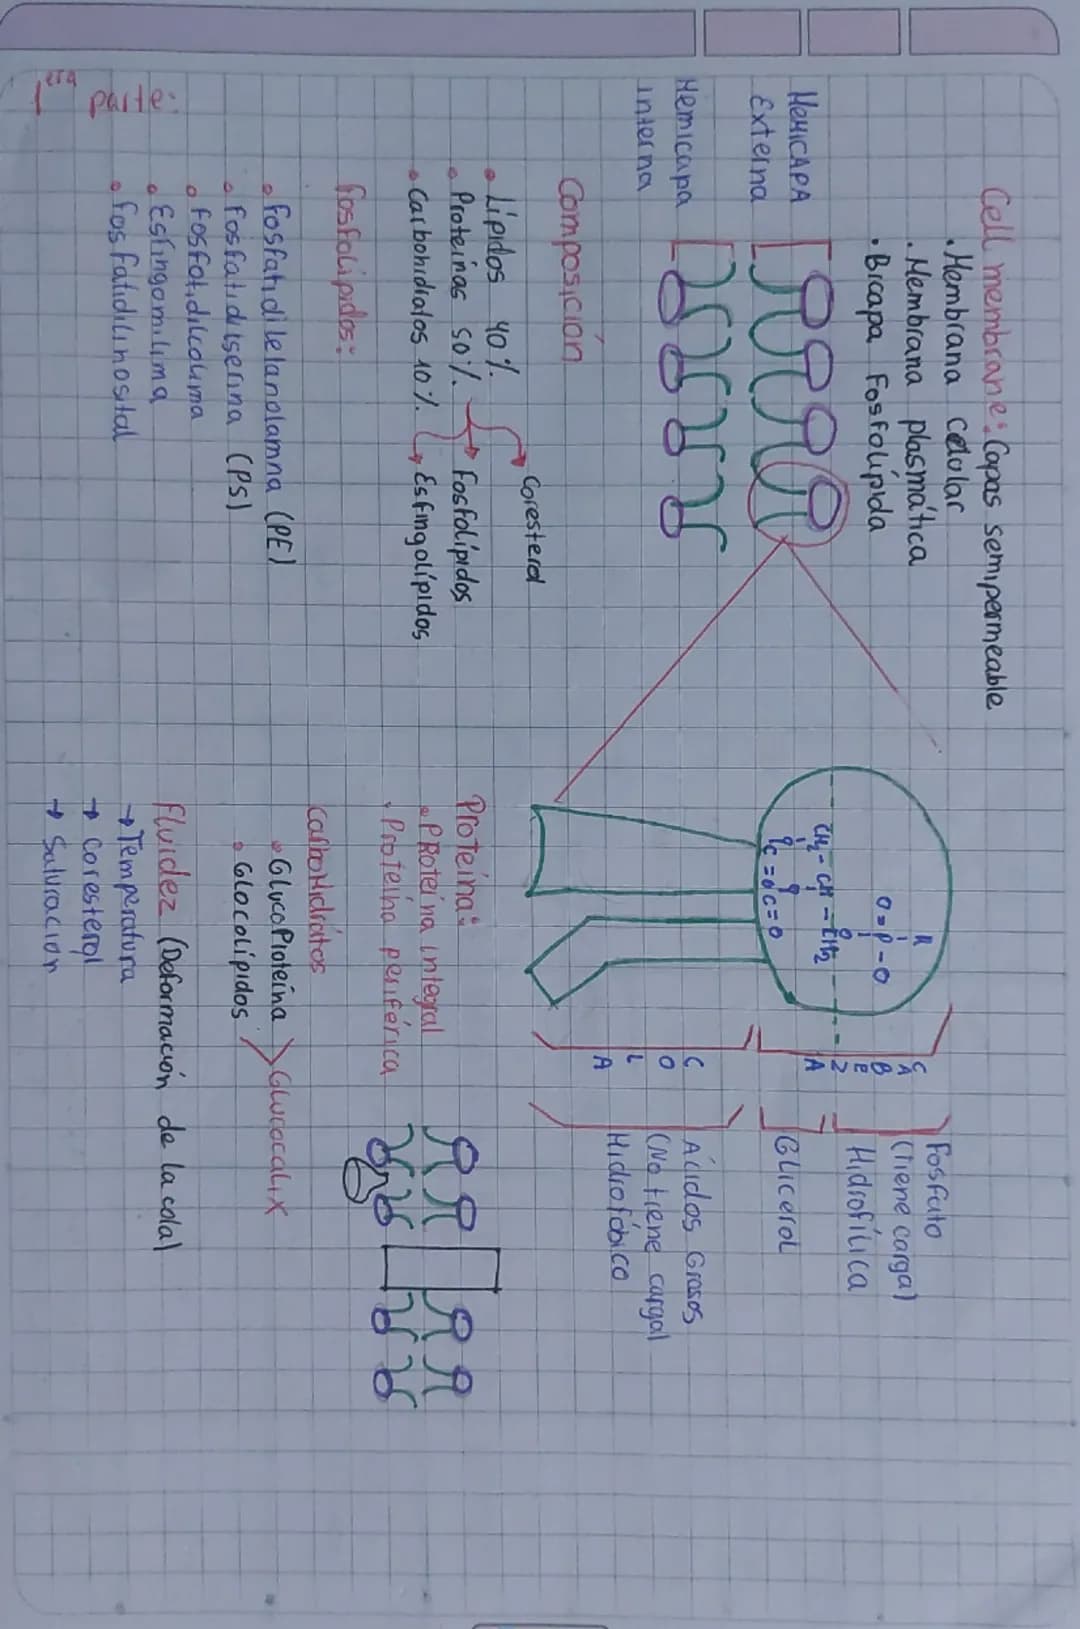 Cell membrane: Capas semipermeable
• Membrana celular
• Membrana plasmática
• Bicapa Fosfolípida
HEMICAPA
Externa
Hemicapa
interna
Composición
• Lípidos 40%
• Proteínas 50%
• Carbohidratos 10%
Coresterol
Fosfolípidos
Esfingolípidos
Fosfolípidos:
• Fosfatidiletanolamna (PE)
• Fosfatidiserina (PS)
• Fosfatidilcolima
• Esfingomilima
• Fosfatidilinosital
1era parte:
R
O=P-O
O
CH2-CH-CH2
O O
C=O C=O
CABEZA
COLA
Fosfato
(Tiene carga)
Hidrofílica
Glicerol
Ácidos Grasos
(No tiene carga)
Hidrofóbico
Proteína:
• PRoteína integral
• Proteína periférica
CarboHidratos
• GlucoProteína
• Glocolípidos
Glucocalix
Fluidez (Deformación de la cola)
→ Temperatura
→ Coresterol
→ Saturación